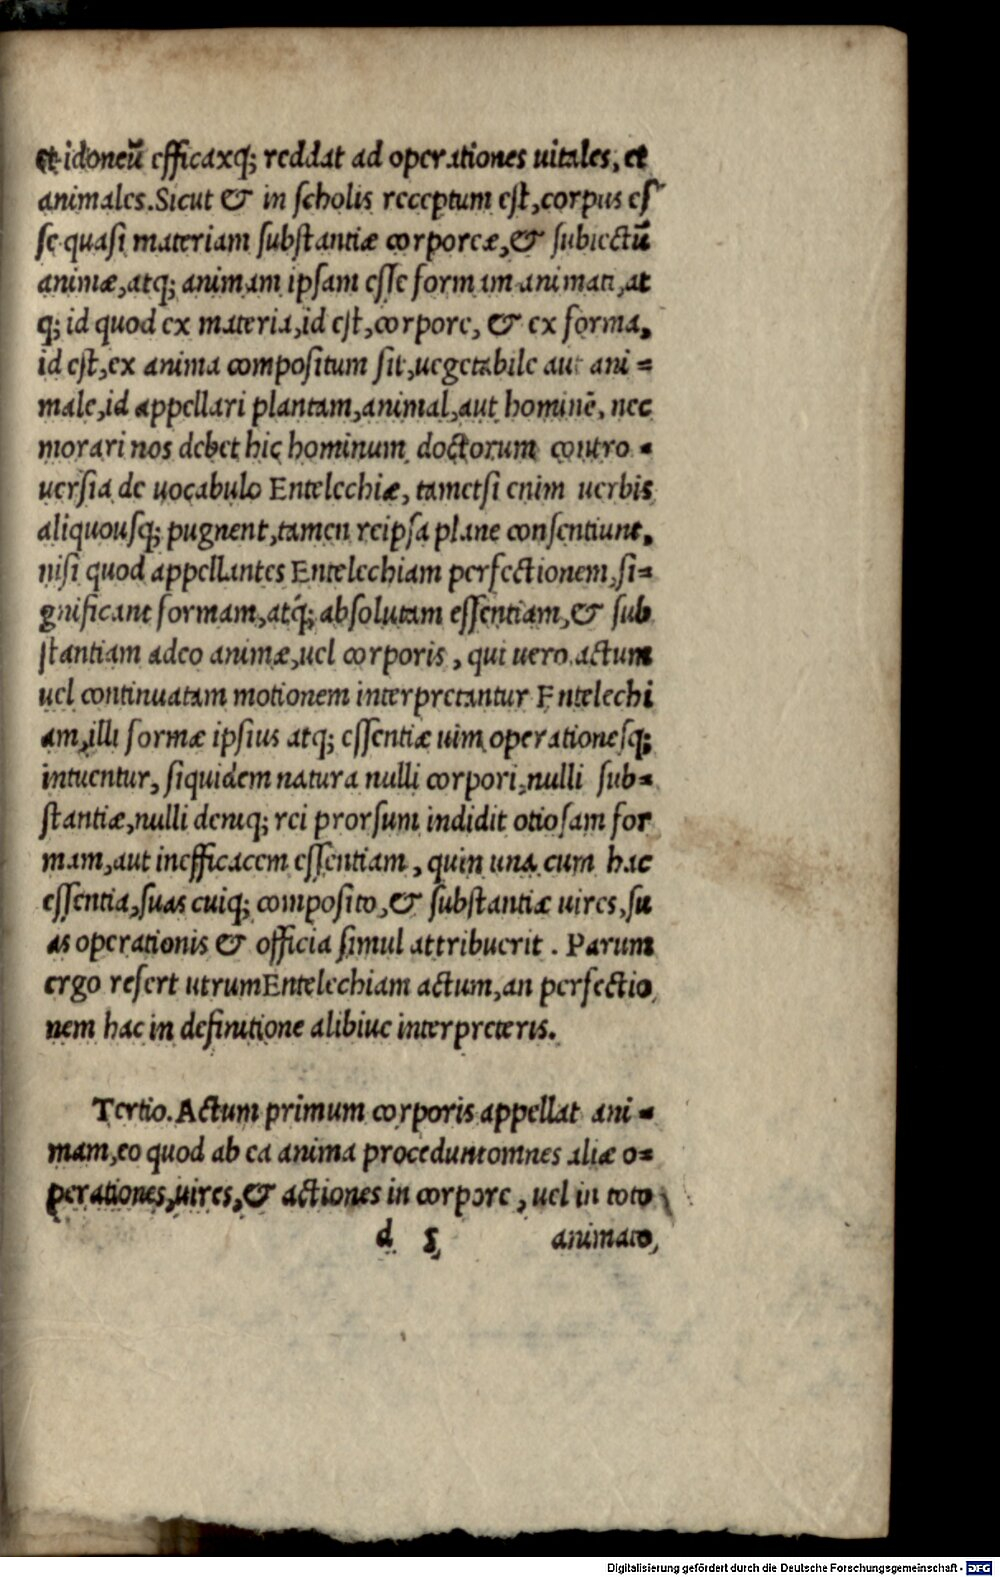 et idoneũ efficaxq; reddat ad operationes uitales, et
animales. Sicut & in scholis receptum est, corpus es
se quasi materiam substantiæ corporeæ, & subiectũ
animæ, atq; animam ipsam esse formam animati, at
q; id quod ex materia, id est, corpore, & ex forma,
id est, ex anima compositum sit, uegetabile aut ani=
male, id appellari plantam, animal, aut hominẽ, nec
morari nos debet hic hominum doctorum contro=
uersia de uocabulo Entelechiæ, tametsi enim uerbis
aliquousq; pugnent, tamen reipsa plane consentiunt,
nisi quod appellantes Entelechiam perfectionem, si=
gnificant formam, atq; absolutam essentiam, & sub
stantiam adeo animæ, uel corporis, qui uero actum
uel continuatam motionem interpretantur Entelechi
am, illi formæ ipsius atq; essentiæ uim operationesq;
intuentur, siquidem natura nulli corpori, nulli sub=
stantiæ, nulli deniq; rei prorsum indidit otiosam for
mam, aut inefficacem essentiam, quin una cum hac
essentia, suas cuiq; composito, & substantiæ uires, su
as operationis & officia simul attribuerit. Parum
ergo refert utrum Entelechiam actum, an perfectio
nem hac in definitione alibiue interpreteris.
Tertio. Actum primum corporis appellat ani=
mam, eo quod ab ea anima procedunt omnes aliæ o=
perationes, uires, & actiones in corpore, uel in toto
d 5 animato,
Digitalisierung gefördert durch die Deutsche Forschungsgemeinschaft - DFG